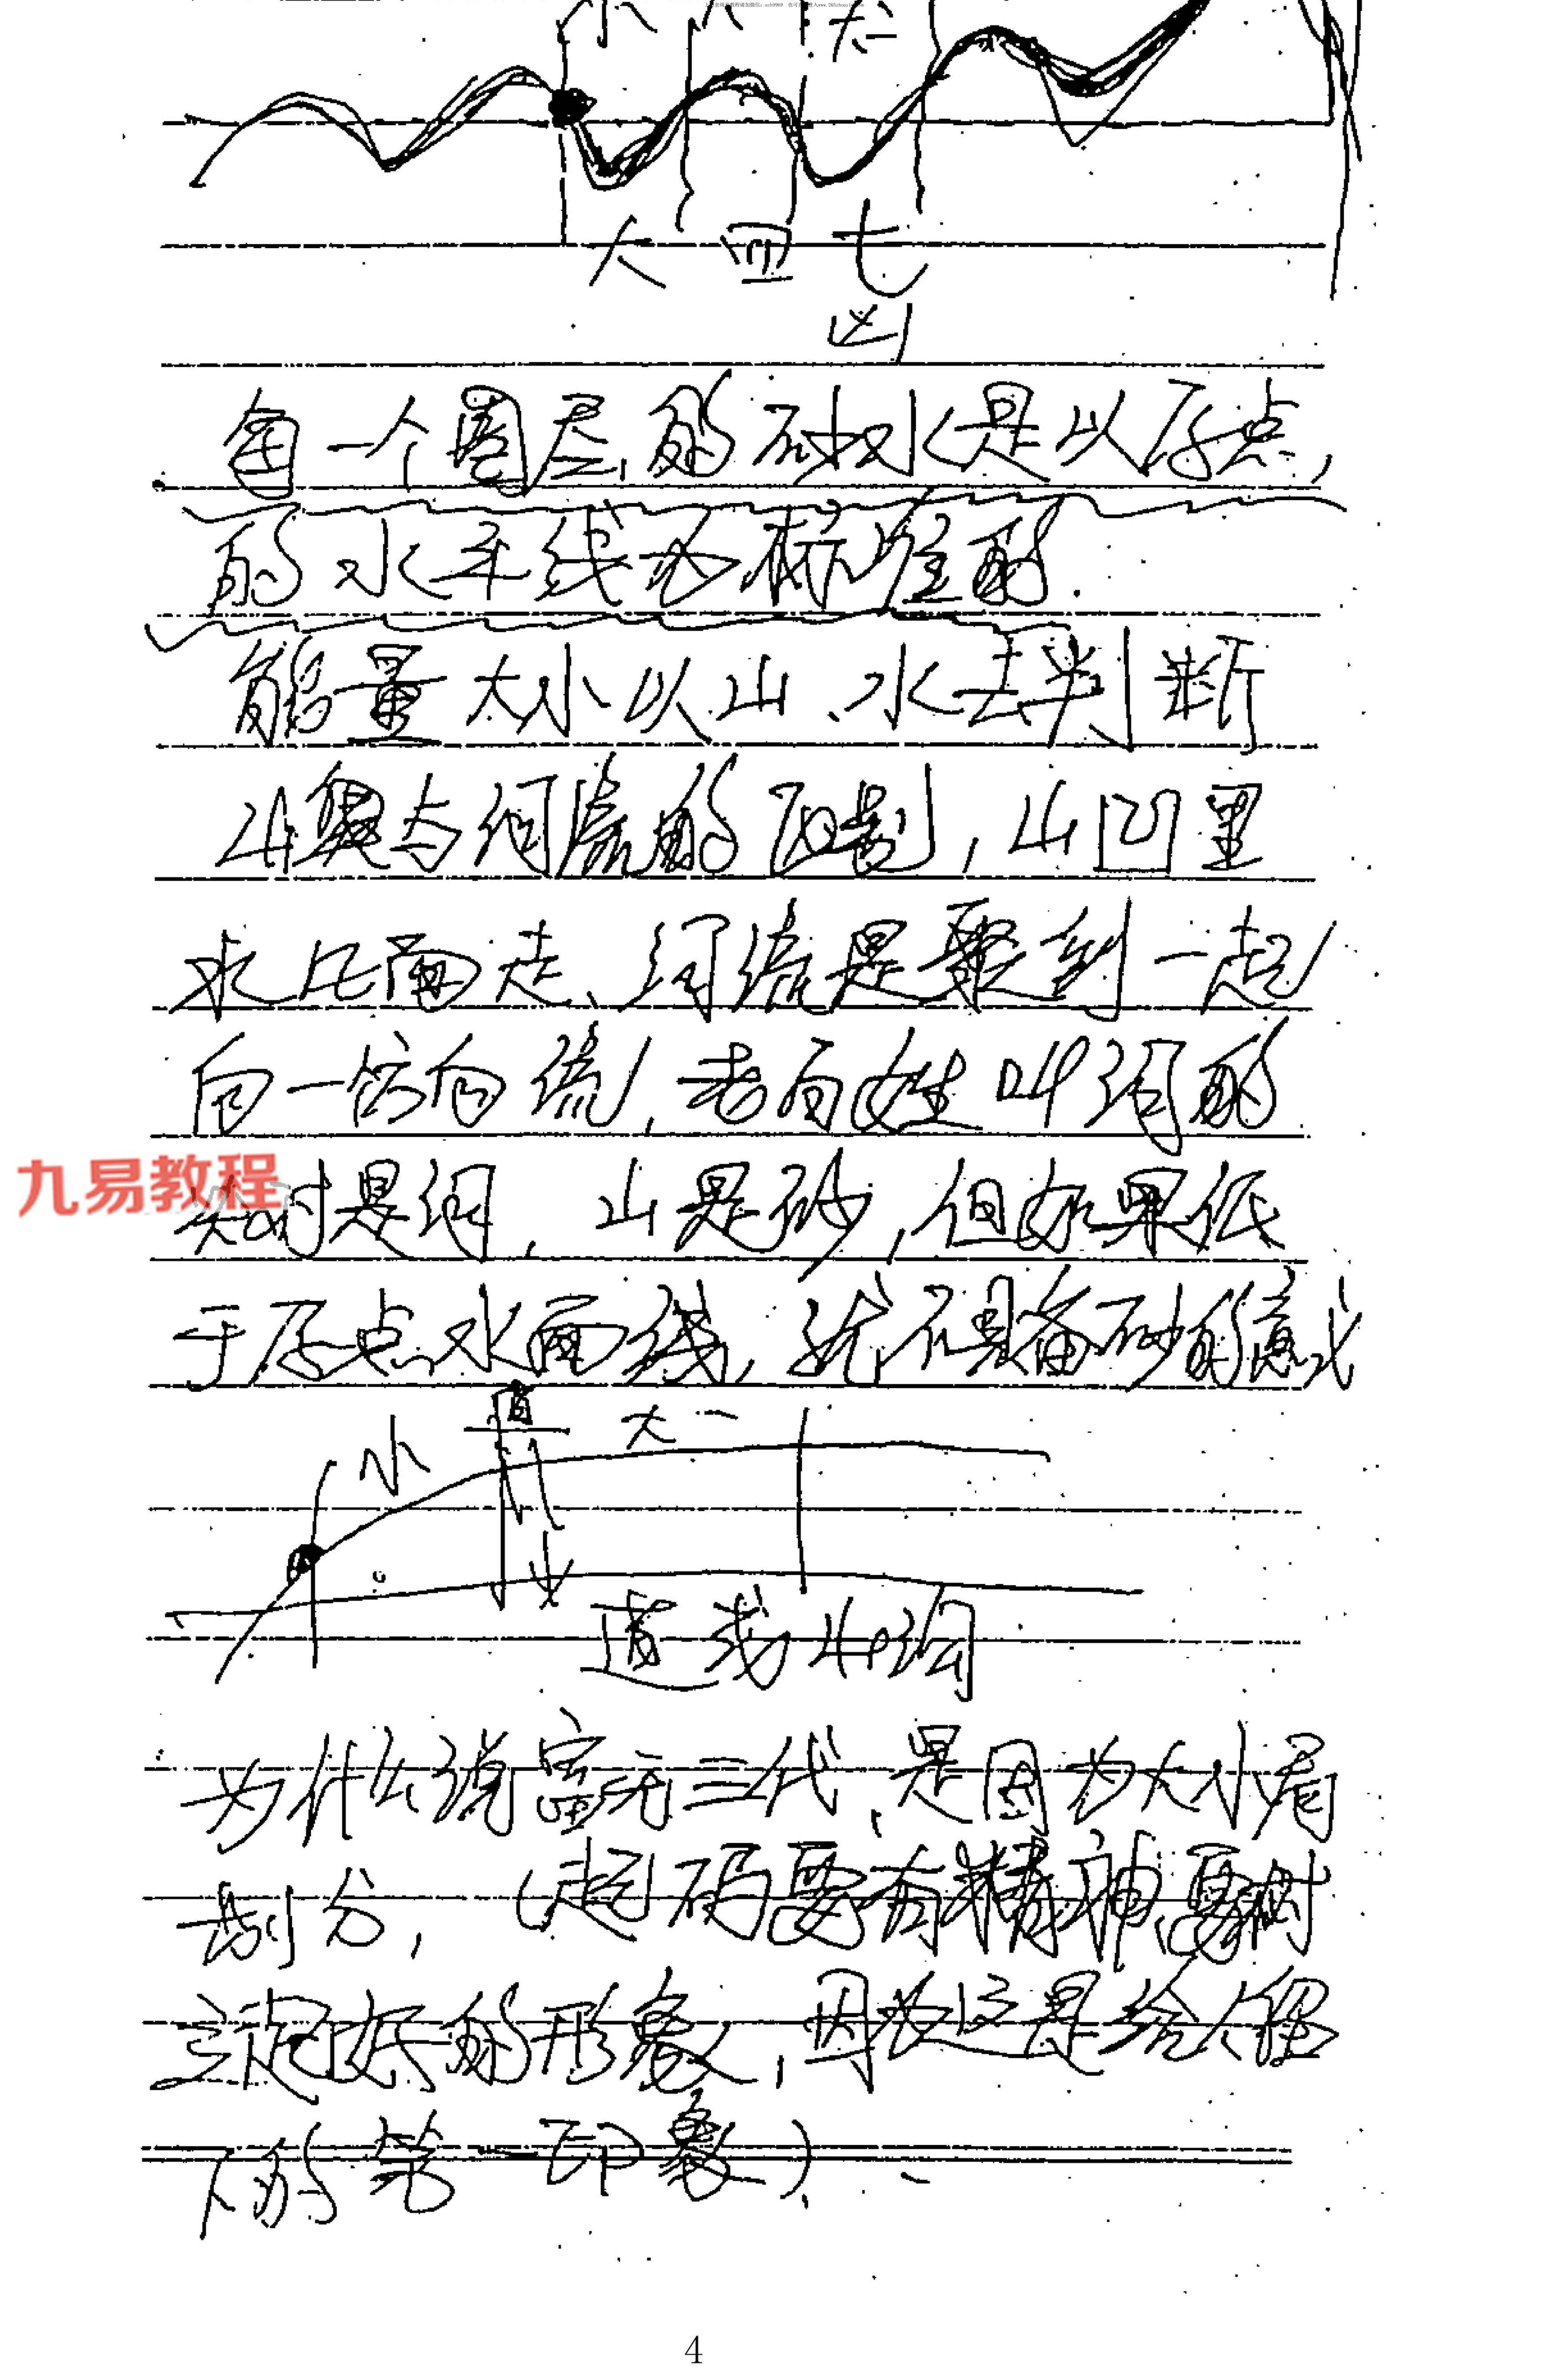 小 大 大
大 四 七
凶
每一个圈层的砂水是以原点
的水平线为标准的.
能量大小以山、水去判断
山与河流的区别，山凹里
水比面走、河流是聚到一起
向一方向流，老百姓叫河的
是河，山是砂，但如果低
于原点水面线，就不具备砂的意义
小 直 大
水
道
为什么说富无三代、是因为大小局
划分，（起码要有精神、要树
立起好的形象，因为这是给人留
下的第一印象）.
九易教程
4